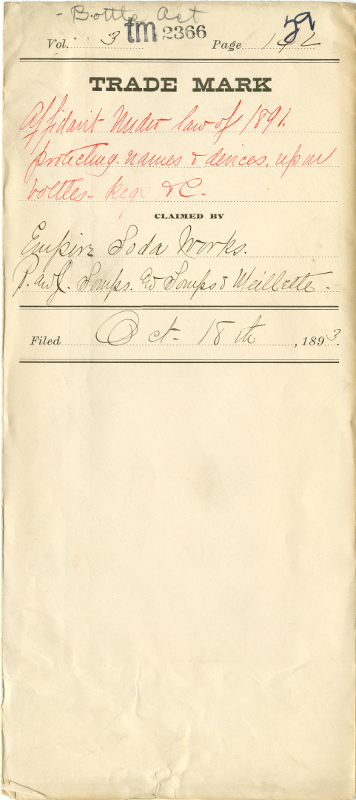 - Bottle Act
Vol. 3 tm 2366 Page 192
TRADE MARK
Affidavit under law of 1891.
protecting names & devices, upon
bottles - kegs &c.
CLAIMED BY
Empire Soda Works.
P. & J. Somps. & Somps & Meillette.
Filed Oct- 18th, 1893.